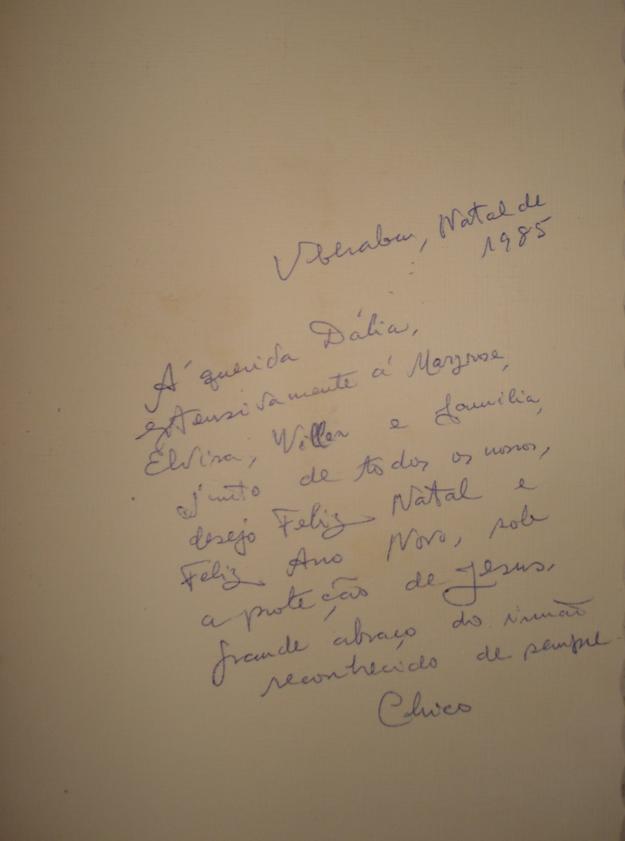 Uberaba, Natal de
1985
Á querida Dália,
extensivamente á Maryrose,
Elvira, Willer e família,
junto de todos os nossos,
desejo Feliz Natal e
Feliz Ano Novo, sob
a proteção de Jesus.
Grande abraço do irmão
reconhecido de sempre
Chico